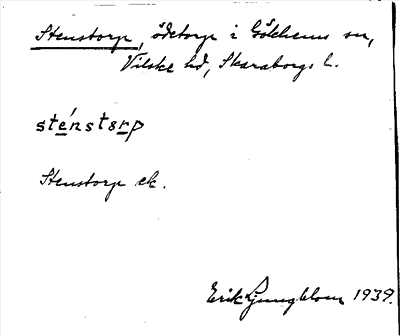 Stenstorp, ödetorp i Gökhems sn,
Vilske hd, Skaraborgs l.
sténstɜrp
Stenstorp ek.
Erik Ljungblom 1939.